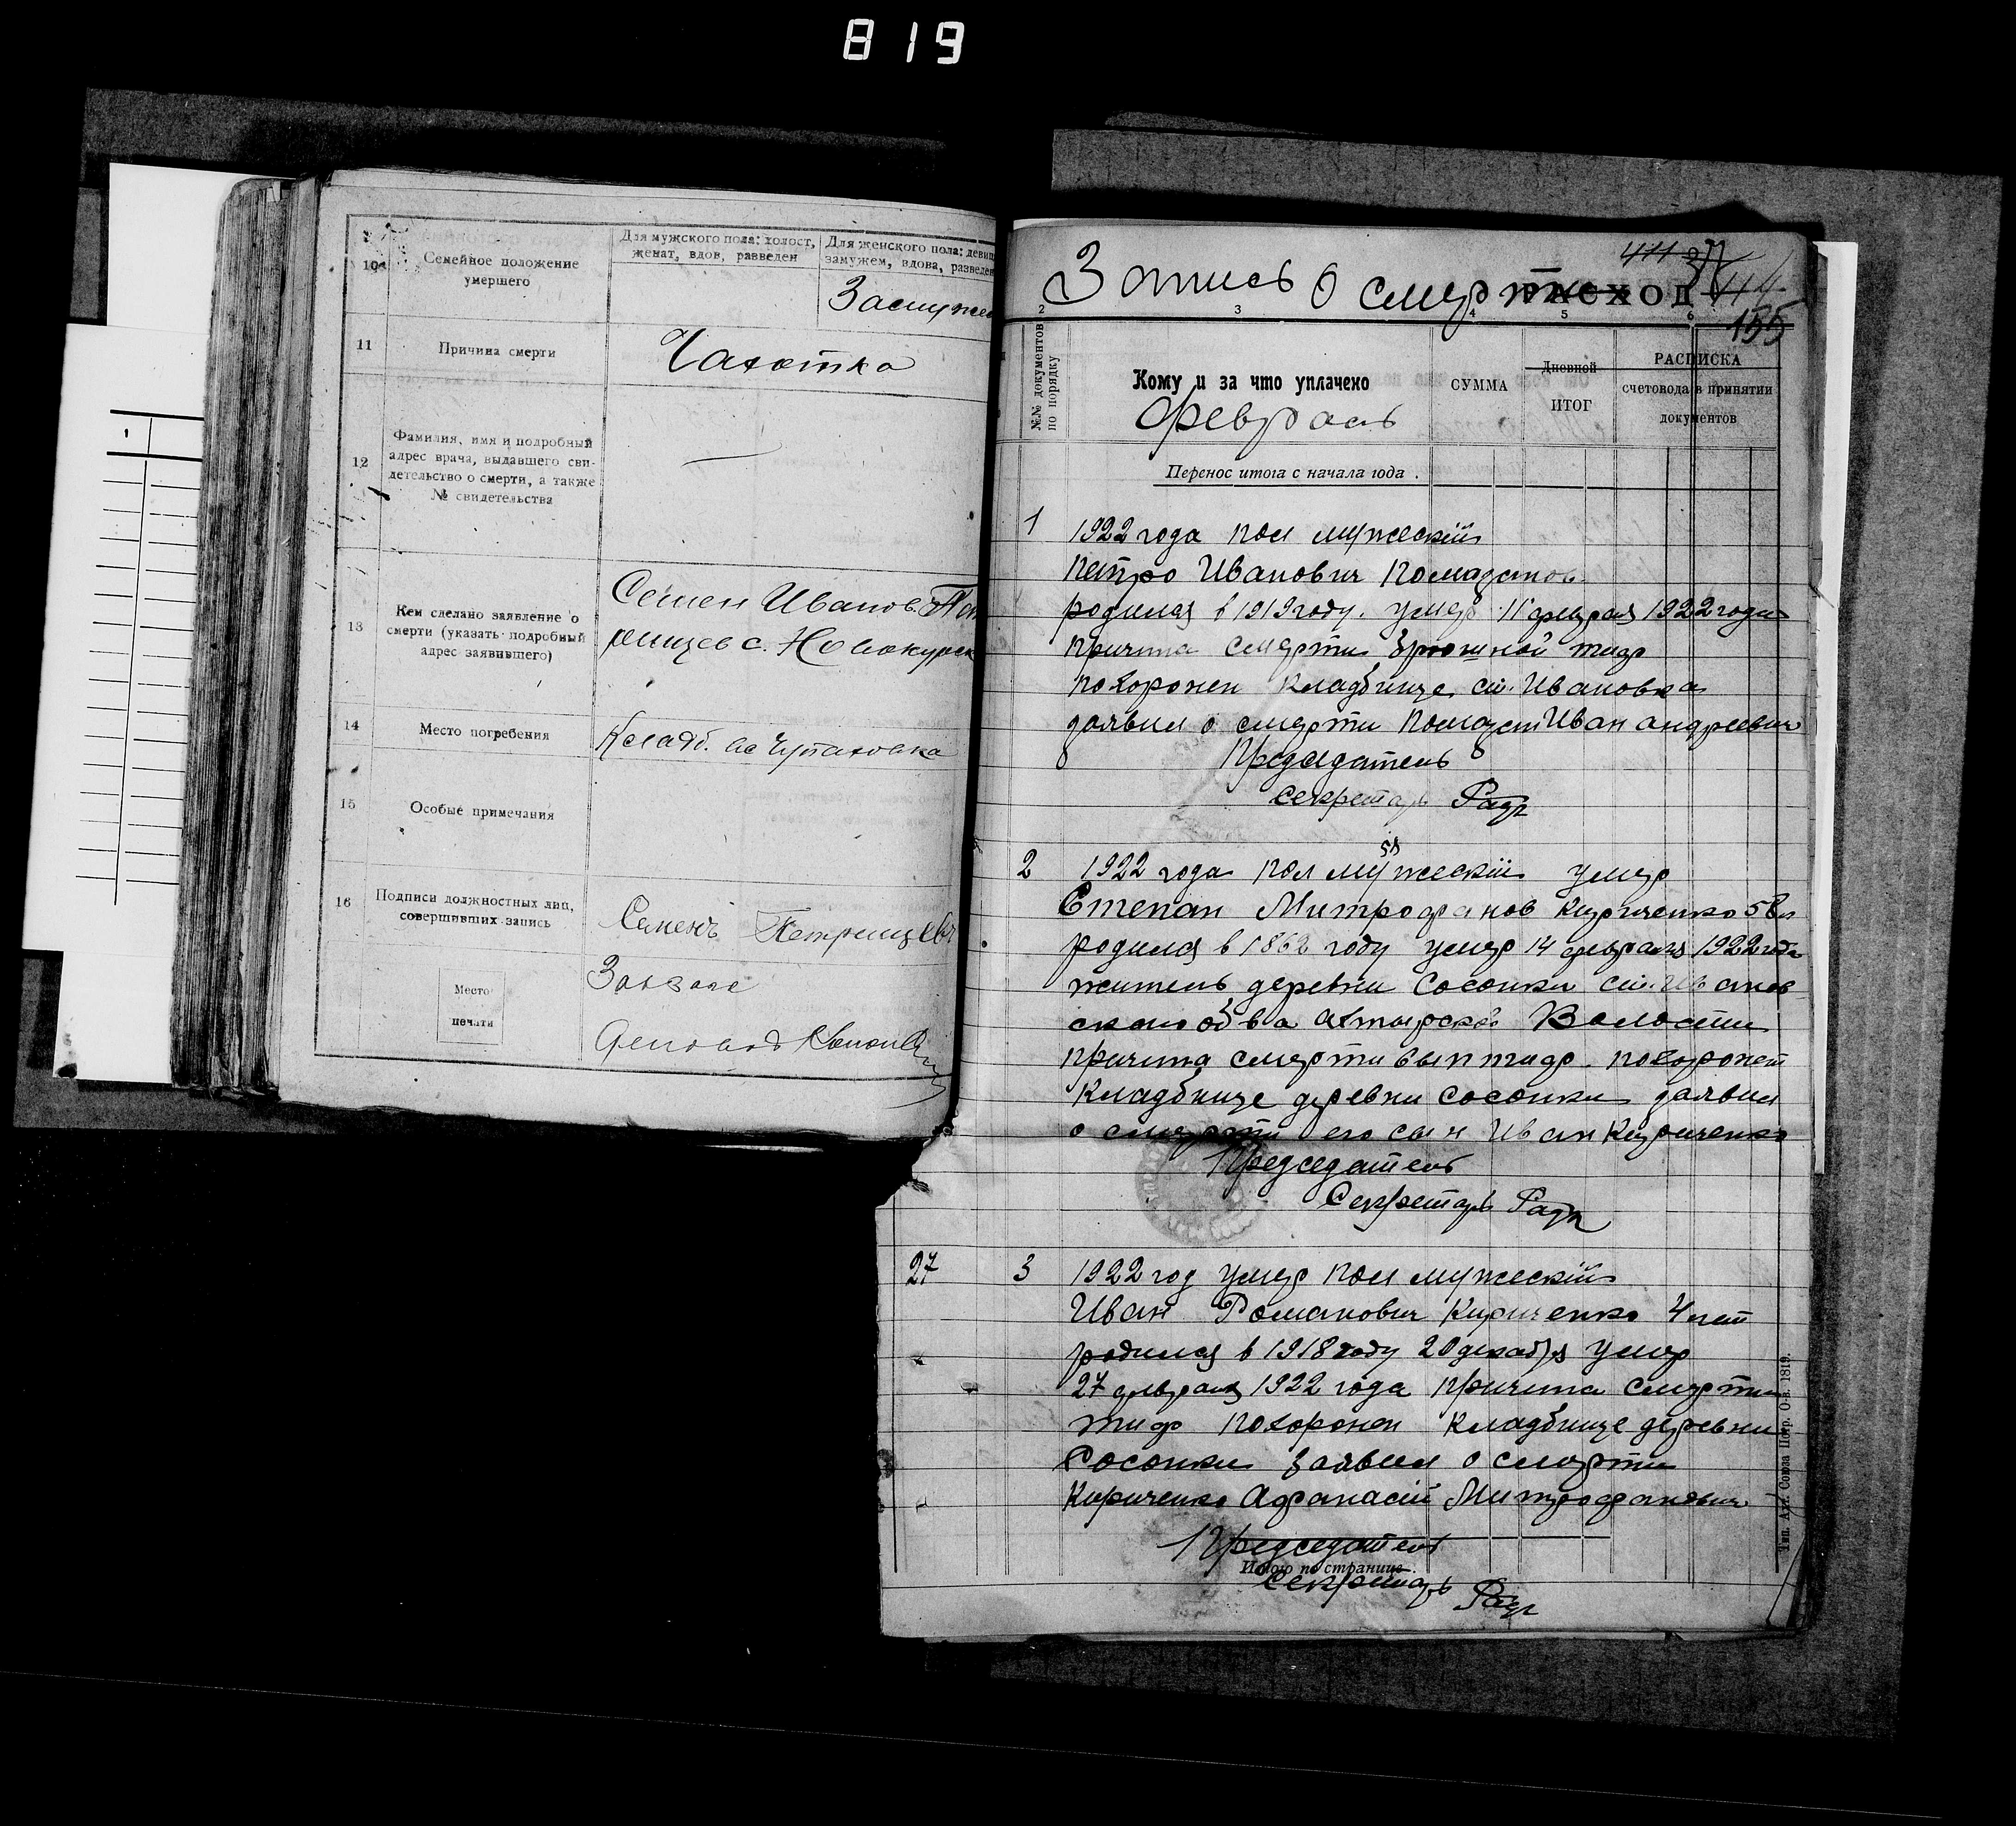 819
10
Семейное положение
умершего
Для мужского пола: холост,
женат, вдов, разведен
Для женского пола: девиц
замужем, вдова, разведен
11
Причина смерти
Чахотка
12
Фамилия, имя и подробный
адрес врача, выдавшего сви-
детельство о смерти, а также
№ свидетельства
13
Кем сделано заявление о
смерти (указать подробный
адрес заявившего)
Семен Иванов. Пет
рищев с.
14
Место погребения
Кладб.
15
Особые примечания
16
Подписи должностных лиц,
совершивших запись
Семенъ Петрищевъ
Место
печати
Завзаг
Запись о смерти
411
РАСХОД
155
2 3 4 5 6
№№ документов
по порядку
Кому и за что уплачено
СУММА
Дневной
ИТОГ
РАСПИСКА
счетовода в принятии
документов
февраль
Перенос итога с начала года .
1
1922 года пол мужеский
Петро Иванович
родился в 1919 году. умер 11 февраля 1922 года
причина смерти брюшной тиф
похорнен кладбище см. Ивановка
заявил о смерти Иван андреевич
Председатель
секретарь
58
2
1922 года пол мужеский умер
Степан Митрофанов Кириченко 58 л
родился в 1862 году умер 14 февраля 1922 года
житель деревни Сосонки см. Иванов
ского об ва Ахтырской Волости
причина смерти вып тиф. похоронен
Кладбище деревни Сосонки заявил
о смерти его сын Иван Кириченко
Председатель
Секретарь
27
3
1922 год умер пол мужеский
Иван Романович Кириченко 4 лет
родился в 1918 году 20 декабря умер
27 февраля 1922 года причина смерти
тиф похоронен кладбище деревни
Сосонки заявил о смерти
Кириченко Афанасий Митрофанович
Председатель
Итого по странице .
секретарь
Тип. Ахт. Союза Потр. О-в. 1819.